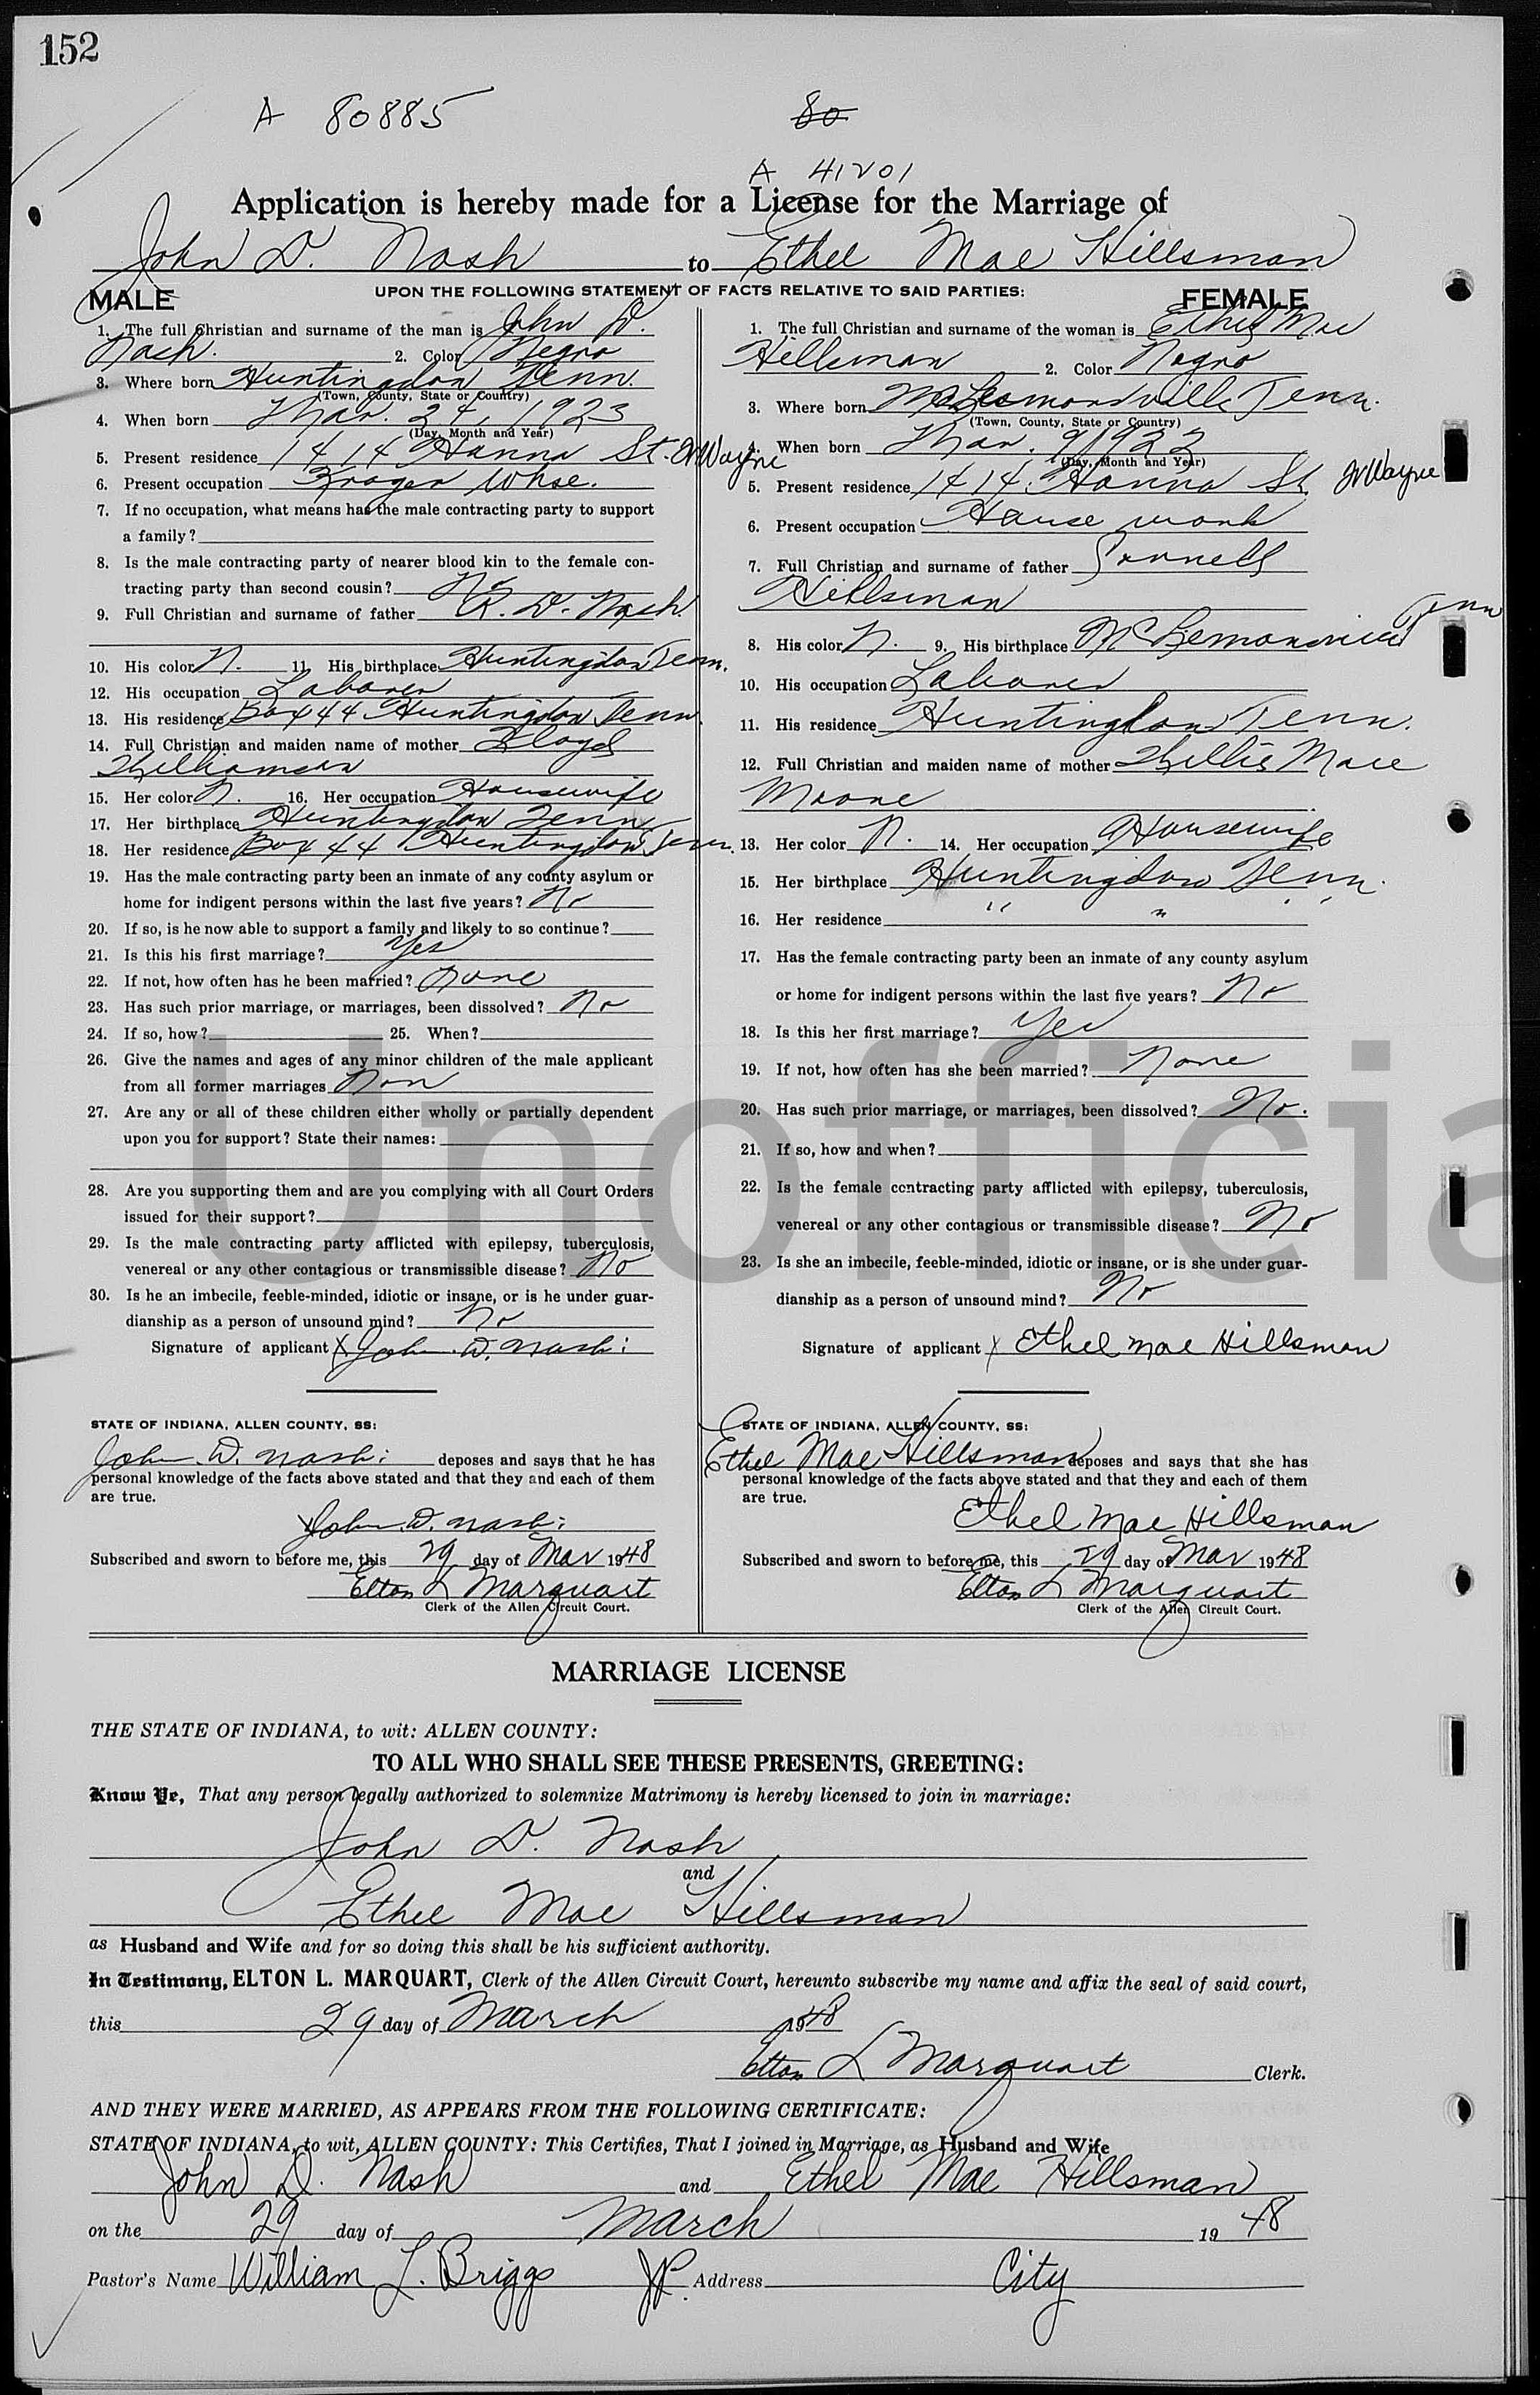 152
A 80885
80
A 41201
Application is hereby made for a License for the Marriage of
John D. Nash to Ethel Mae Hillsman
UPON THE FOLLOWING STATEMENT OF FACTS RELATIVE TO SAID PARTIES:
MALE
1. The full Christian and surname of the man is John D.
Nash. 2. Color Negro
3. Where born Huntingdon Tenn.
(Town, County, State or Country)
4. When born Mar. 24, 1923
(Day, Month and Year)
5. Present residence 1414 Hanna St. Ft Wayne
6. Present occupation Kroger Whse.
7. If no occupation, what means has the male contracting party to support
a family?
8. Is the male contracting party of nearer blood kin to the female con-
tracting party than second cousin? No
9. Full Christian and surname of father R. D. Nash.
10. His color N. 11. His birthplace Huntingdon Tenn.
12. His occupation Laborer
13. His residence Box 44 Huntingdon Tenn.
14. Full Christian and maiden name of mother Floyd
15. Her color N. 16. Her occupation Housewife
17. Her birthplace Huntingdon Tenn
18. Her residence Box 44 Huntingdon Tenn.
19. Has the male contracting party been an inmate of any county asylum or
home for indigent persons within the last five years? No
20. If so, is he now able to support a family and likely to so continue?
21. Is this his first marriage? Yes
22. If not, how often has he been married? None
23. Has such prior marriage, or marriages, been dissolved? No
24. If so, how? 25. When?
26. Give the names and ages of any minor children of the male applicant
from all former marriages Non
27. Are any or all of these children either wholly or partially dependent
upon you for support? State their names:
28. Are you supporting them and are you complying with all Court Orders
issued for their support?
29. Is the male contracting party afflicted with epilepsy, tuberculosis,
venereal or any other contagious or transmissible disease? No
30. Is he an imbecile, feeble-minded, idiotic or insane, or is he under guar-
dianship as a person of unsound mind? No
Signature of applicant X John. D. Nash:
STATE OF INDIANA, ALLEN COUNTY, SS:
John. D. Nash: deposes and says that he has
personal knowledge of the facts above stated and that they and each of them
are true.
X John. D. Nash:
Subscribed and sworn to before me, this 29 day of Mar 1948
Elton L Marquart
Clerk of the Allen Circuit Court.
FEMALE
1. The full Christian and surname of the woman is Ethel Mae
Hillsman 2. Color Negro
3. Where born McLemoresville Tenn.
(Town, County, State or Country)
4. When born Mar. 9, 1922
(Day, Month and Year)
5. Present residence 1414 Hanna St. Ft Wayne
6. Present occupation House work
7. Full Christian and surname of father
Hillsman
8. His color N. 9. His birthplace McLemoresville Tenn
10. His occupation Laborer
11. His residence Huntingdon Tenn.
12. Full Christian and maiden name of mother Mae
Moore
13. Her color N. 14. Her occupation Housewife
15. Her birthplace Huntingdon Tenn.
16. Her residence " " "
17. Has the female contracting party been an inmate of any county asylum
or home for indigent persons within the last five years? No
18. Is this her first marriage? Yes
19. If not, how often has she been married? None
20. Has such prior marriage, or marriages, been dissolved? No.
21. If so, how and when?
22. Is the female contracting party afflicted with epilepsy, tuberculosis,
venereal or any other contagious or transmissible disease? No
23. Is she an imbecile, feeble-minded, idiotic or insane, or is she under guar-
dianship as a person of unsound mind? No
Signature of applicant X Ethel Mae Hillsman
STATE OF INDIANA, ALLEN COUNTY, SS:
Ethel Mae Hillsman deposes and says that she has
personal knowledge of the facts above stated and that they and each of them
are true.
Ethel Mae Hillsman
Subscribed and sworn to before me, this 29 day of Mar 1948
Elton L Marquart
Clerk of the Allen Circuit Court.
Unofficia
MARRIAGE LICENSE
THE STATE OF INDIANA, to wit: ALLEN COUNTY:
TO ALL WHO SHALL SEE THESE PRESENTS, GREETING:
Know Ye, That any person legally authorized to solemnize Matrimony is hereby licensed to join in marriage:
John D. Nash
and
Ethel Mae Hillsman
as Husband and Wife and for so doing this shall be his sufficient authority.
In Testimony, ELTON L. MARQUART, Clerk of the Allen Circuit Court, hereunto subscribe my name and affix the seal of said court,
this 29 day of March 1948
Elton L Marquart Clerk.
AND THEY WERE MARRIED, AS APPEARS FROM THE FOLLOWING CERTIFICATE:
STATE OF INDIANA, to wit, ALLEN COUNTY: This Certifies, That I joined in Marriage, as Husband and Wife
John D. Nash and Ethel Mae Hillsman
on the 29 day of March 19 48
Pastor's Name William L. Briggs JP. Address City